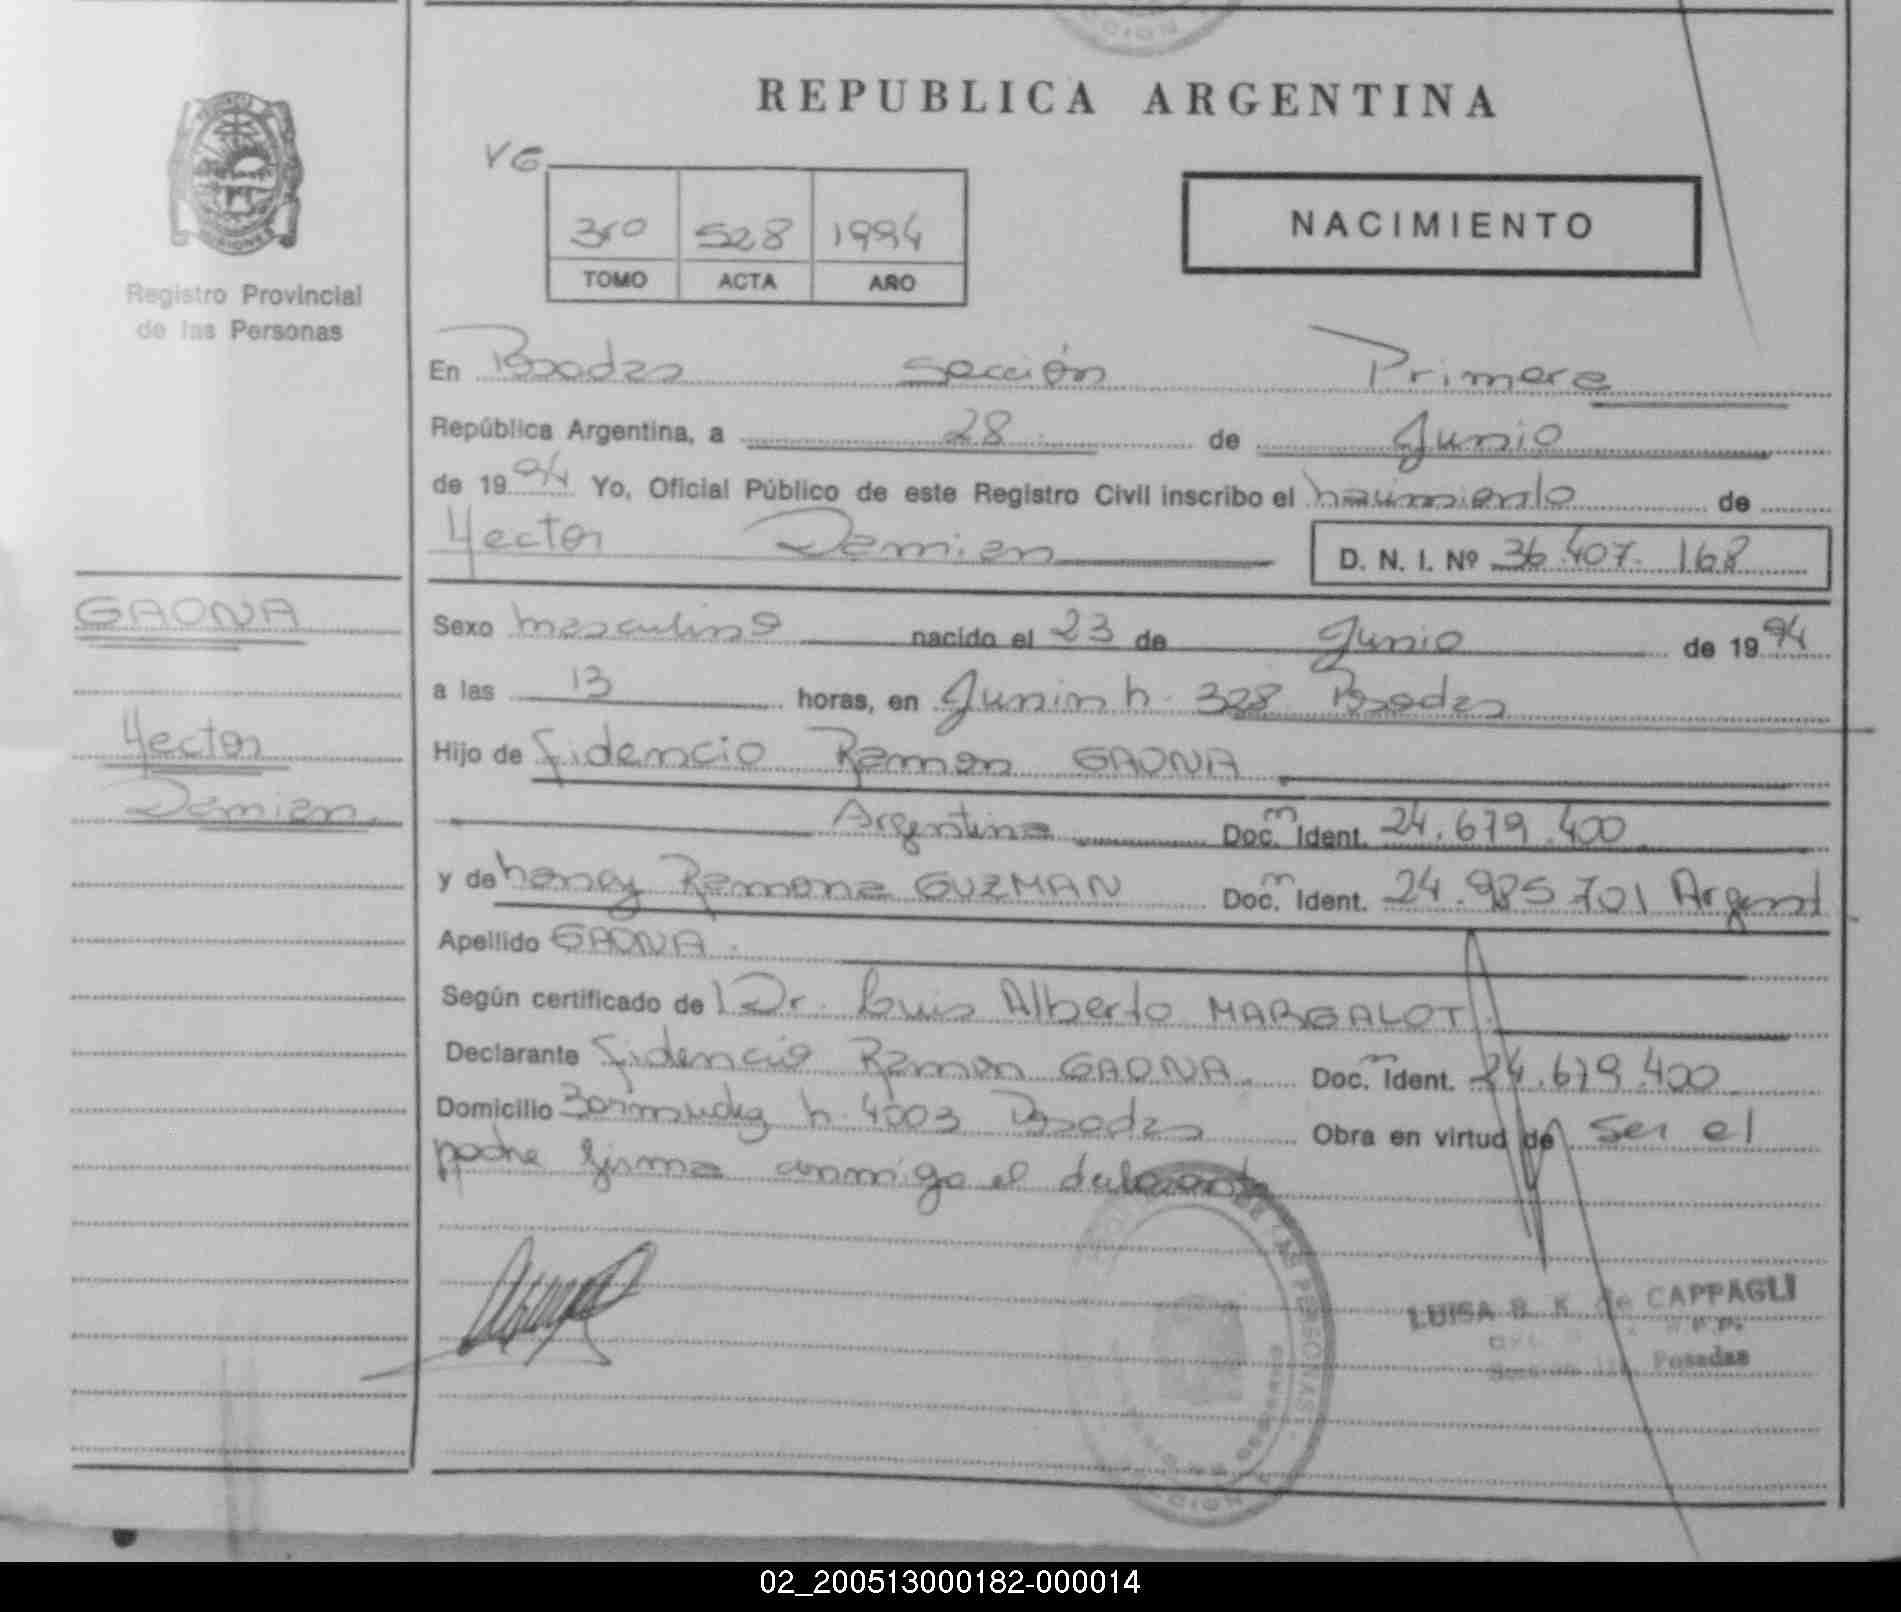 REPUBLICA ARGENTINA
VG
3ro 528 1994
TOMO ACTA AÑO
NACIMIENTO
MISIONES
Registro Provincial
de las Personas
En Posadas sección Primera
República Argentina, a 28 de Junio
de 1994 Yo, Oficial Público de este Registro Civil inscribo el nacimiento de
Hector Demian
D. N. I. Nº 36.407.168
GAONA
Hector
Demian
Sexo masculino nacido el 23 de Junio de 1994
a las 13 horas, en Junin n. 328 Posadas
Hijo de Fidencio Ramon GAONA
Argentina Doc. Ident. 24.679.400
y de nancy Ramona GUZMAN Doc. Ident. 24.985.701 Argent
Apellido GAONA.
Según certificado de Dr. Luis Alberto MARGALOT.
Declarante Fidencio Ramon GAONA. Doc. Ident. 24.679.400
Domicilio Bermudez n. 4003 Posadas Obra en virtud de ser el
padre firma conmigo el
LUISA B. K. de CAPPAGLI
Posadas
02_200513000182-000014